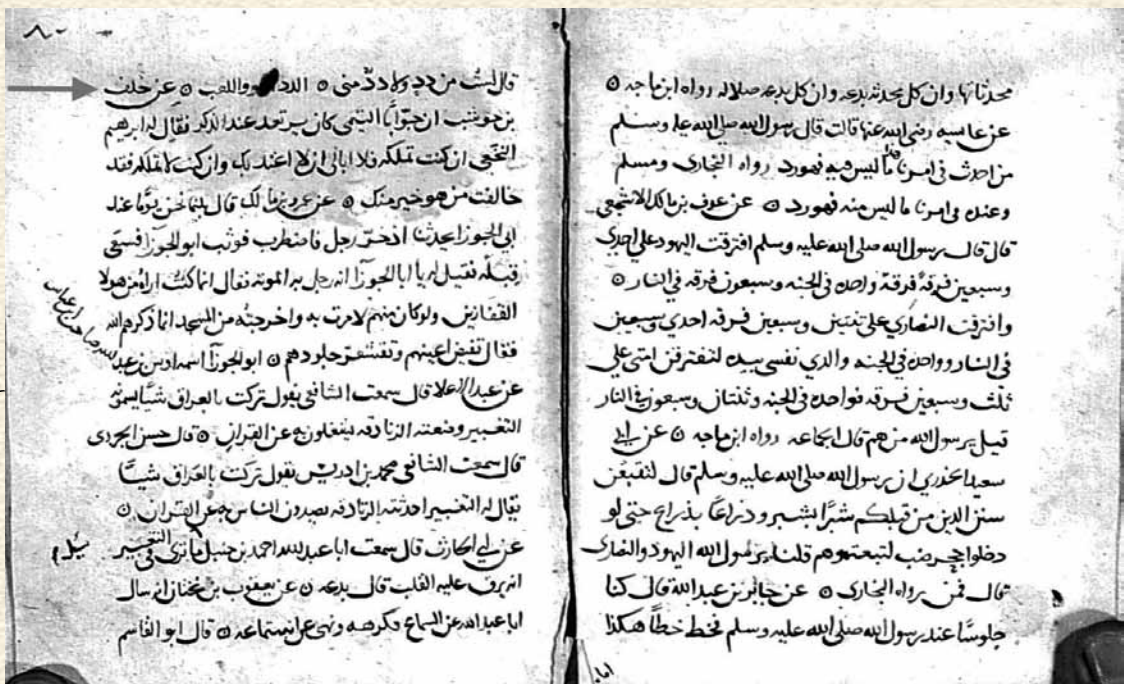 محدثاتها وان كل محدثه بدعه وان كل بدعه ضلاله رواه ابن ماجه ۞
عن عايشه رضي الله عنها قالت قال رسول الله صلى الله عليه وسلم
من احدث في امرنا هذا ما ليس فيه فهو رد رواه البخاري ومسلم
وعنده في امرنا ما ليس منه فهو رد ۞ عن عوف بن مالك الاشجعي
قال قال رسول الله صلى الله عليه وسلم افترقت اليهود على احدي
وسبعين فرقة فرقة واحده في الجنه وسبعون فرقه في النار ۞
وافترقت النصاري على ثنتين وسبعين فرقه احدي وسبعين
في النار وواحده في الجنه والذي نفسي بيده لتفترقن امتي علي
ثلث وسبعين فرقه فواحده في الجنه وثنتان وسبعون في النار
قيل يرسول الله من هم قال الجماعه رواه ابن ماجه ۞ عن ابي
سعيد الخدري ان رسول الله صلى الله عليه وسلم قال لتتبعن
سنن الذين من قبلكم شبرًا بشبر وذراعًا بذراع حتى لو
دخلوا جحر ضب لتبعتموهم قلنا يرسول الله اليهود والنصارى
قال فمن رواه البخارى ۞ عن جابر بن عبد الله قال كنا
جلوسًا عند رسول الله صلى الله عليه وسلم فخط خطًا هكذا
امامه
٨٠
قال لست من دد ولا دد مني ۞ الدد واللعب ۞ عن خلف
بن حوشب ان جوّابًا التيمى كان يرتعد عند الذكر فقال له ابرهيم
النخعي ان كنت تملكه فلا ابالي ان لا اعتد بك وان كنت لا تملكه فقد
خالفت من هو خير منك ۞ عن عمرو بن مالك قال بينما نحن يومًا عند
ابي الجوزا يحدثنا اذ خرّ رجل فاضطرب فوثب ابو الجوزا فسعى
قبله فقيل له يا ابا الجوزا انه رجل به الموتة فقال انما كنت اراه من هولا
القفازين ولو كان منهم لامرت به واخرجته من المسجد انما ذكرهم الله
فقال تفيض اعينهم وتقشعر جلودهم ۞ ابو الجوزا اسمه اوس بن عبد
الله صاحب ابن عباس
عن عبد الاعلا قال سمعت الشافعي يقول تركت بالعراق شيًا يسمونه
التغبير وضعته الزنادقه يشغلون به عن القران ۞ قال حسن الجردى
قال سمعت الشافعي محمد بن ادريس يقول تركت بالعراق شيًا
يقال له التغبير احدثته الزنادقه يصدون الناس به عن القران ۞
عن ابي الحارث قال سمعت ابا عبد الله احمد بن حنبل ما ترى في التغبير
انه يرق عليه القلب قال بدعه ۞ عن يعقوب بن بختان انه سال
ابا عبد الله عن السماع فكرهه ونهى عن استماعه ۞ قال ابو القاسم